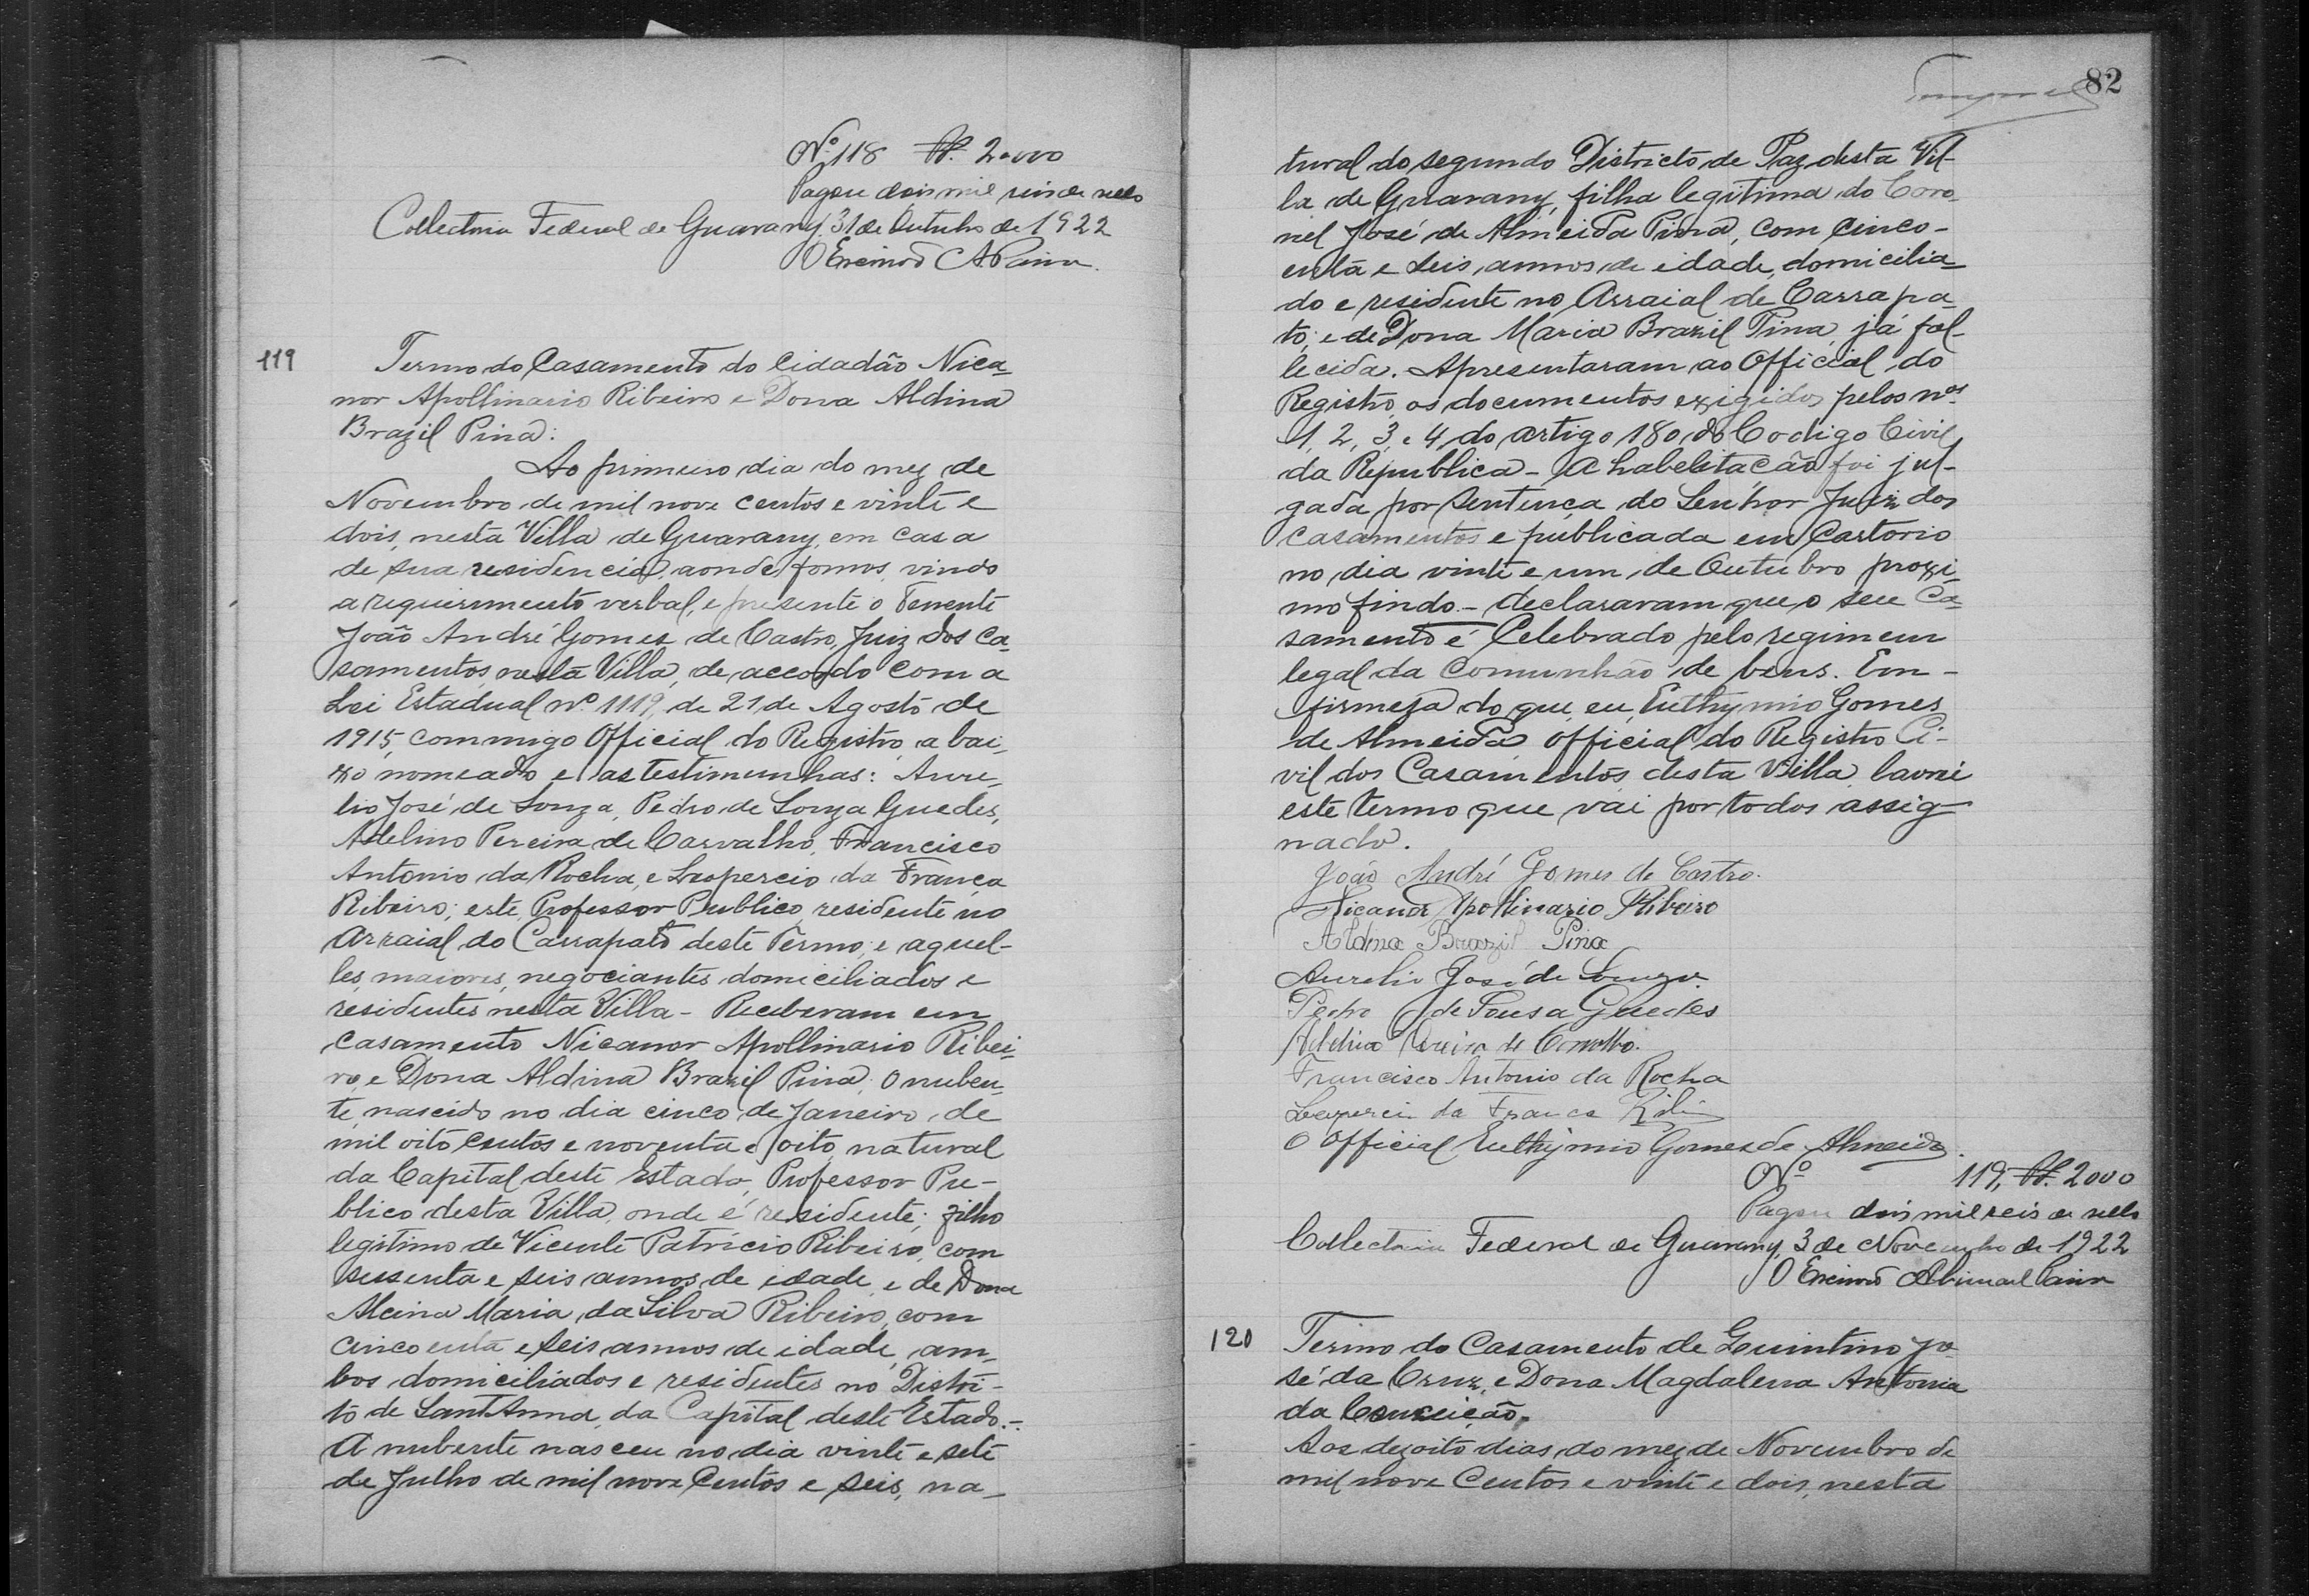 Nº 118 Rs. 2.000
Pagou dois mil reis de sello
Collectoria Federal de Guarany, 31 de Outubro de 1922
O Escrivão A Paiva
119
Termo do Casamento do Cidadão Nica-
nor Apollinario Ribeiro e Dona Aldina
Brazil Pina:
Ao primeiro dia do mez de
Novembro de mil nove centos e vinte e
dois, nesta Villa de Guarany, em casa
de sua residencia, aonde fomos, vindo
a requerimento verbal, e presente o Tenente
João André Gomes de Castro, Juiz dos Ca-
samentos, nesta Villa, de accordo com a
Lei Estadual nº 1119, de 21 de Agosto de
1915, commigo Official do Registro, abai-
xo nomeado e as testimunhas: Aure-
lio José de Souza, Pedro de Souza Guedes,
Adelino Pereira de Carvalho, Francisco
Antonio da Rocha, e Leopercio da Franca
Ribeiro; este, Professor Publico, residente no
Arraial do Carrapato deste Termo; e aquel-
les, maiores, negociantes, domiciliados e
residentes nesta Villa - Receberam em
casamento Nicanor Apollinario Ribei-
ro, e Dona Aldina Brazil Pina. O nuben-
te, nascido no dia cinco de Janeiro, de
mil oito centos e noventa e oito, natural
da Capital deste Estado, Professor Pu-
blico desta Villa, onde é residente; filho
legitimo de Vicente Patricio Ribeiro, com
sessenta e seis annos de idade, e de Dona
Alcina Maria da Silva Ribeiro, com
cincoenta e seis annos de idade, am-
bos domiciliados e residentes no Distri-
to de Sant'Anna, da Capital deste Estado.-
A nubente nasceu no dia vinte e sete
de Julho de mil nove centos e seis, na-
82
tural do segundo Districto de Paz desta Vil-
la de Guarany, filha legitima do Coro-
nel José de Almeida Pina, com cinco-
enta e seis annos de idade, domicilia-
do e residente no Arraial de Carrapa-
to; e de Dona Maria Brazil Pina, já fal-
lecida. Apresentaram ao Official do
Registro os documentos exigidos pelos nos
1, 2, 3, e 4, do artigo 180, do Codigo Civil
da Republica - A habelitacão foi jul-
gada por sentença do Senhor Juiz dos
casamentos e publicada em Cartorio
no dia vinte e um de Outubro proxi-
mo findo. - Declararam que o seu Ca-
samento é Celebrado pelo regimem
legal da Comunhão de bens. Em -
firmeza do que, eu, Euthymio Gomes
de Almeida Official do Registro Ci-
vil dos Casamentos desta Villa, lavrei
este termo que vai por todos assig-
nado.
João André Gomes de Castro.
Nicanor Apollinario Ribeiro
Aldina Brazil Pina
Aurelio José de Souza.
Pedro de Sousa Guedes
Adelino Pereira de Carvalho.
Francisco Antonio da Rocha
Leopercio da Franca Ribeiro
O Official Euthymio Gomes de Almeida.
Nº 119, Rs. 2000
Pagou dois mil reis de sello
Collectoria Federal de Guarany, 3 de Novembro de 1922
O Escrivão Abimael Paiva
120
Termo do Casamento de Quintino Jo-
sé da Cruz, e Dona Magdalena Antonia
da Conceição.
Aos dezoito dias do mez de Novembro de
mil nove Centos e vinte e dois, nesta